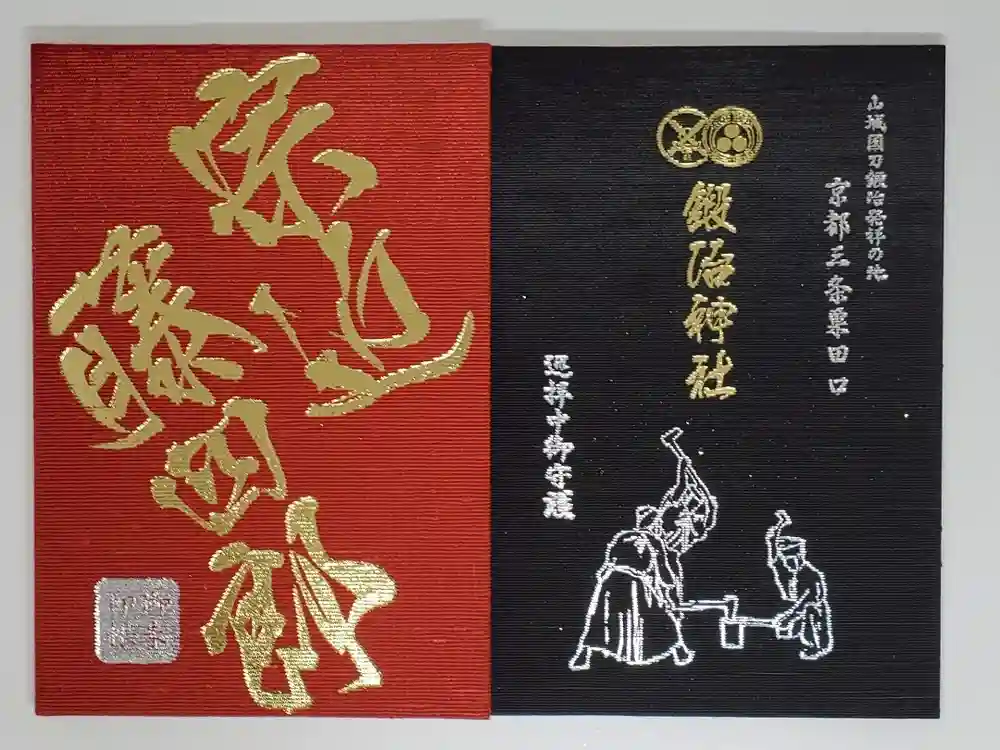 藤四郎
御朱
印帳
山城国刀鍛冶発祥の地
京都三条粟田口
鍛冶神社
巡拝中御守護